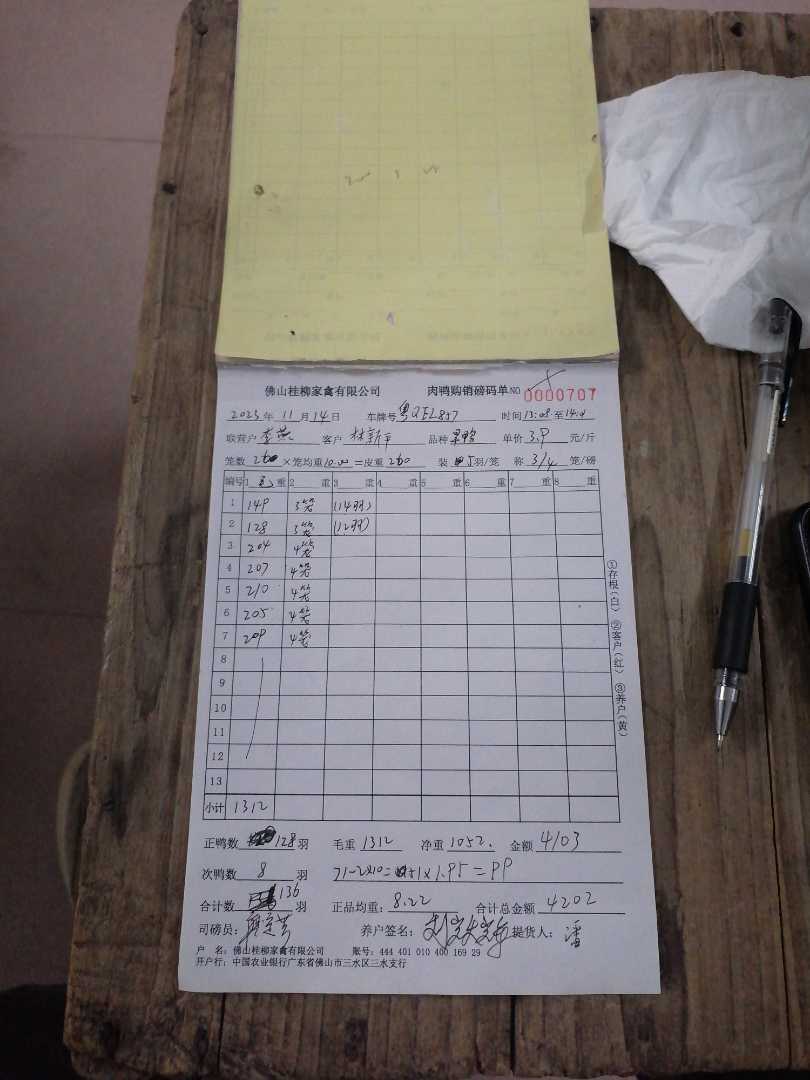 佛山桂柳家禽有限公司 肉鸭购销磅码单 NO 0000707
2023 年 11 月 14 日 车牌号 粤QEL857 时间 13:08 至 14:
联营户 客户 林新平 品种 单价 3.9 元/斤
笼数 260 × 笼均重 10.00 = 皮重 260 装 5 羽/笼 称 3/4 笼/磅
编号 1 毛 重 2 重 3 重 4 重 5 重 6 重 7 重 8 重
1 149 3笼 (14羽)
2 128 3笼 (12羽)
3 204 4笼
4 207 4笼
5 210 4笼
6 205 4笼
7 209 4笼
8
9
10
11
12
13
小计 1312
①存根(白) ②客户(红) ③养户(黄)
正鸭数 128 羽 毛重 1312 净重 1052. 金额 4103
次鸭数 8 羽 71-2×10=51×1.95=99
合计数 136 羽 正品均重: 8.22 合计总金额 4202
司磅员: 养户签名: 提货人: 潘
户 名: 佛山桂柳家禽有限公司 账号: 444 401 010 400 169 29
开户行: 中国农业银行广东省佛山市三水区三水支行